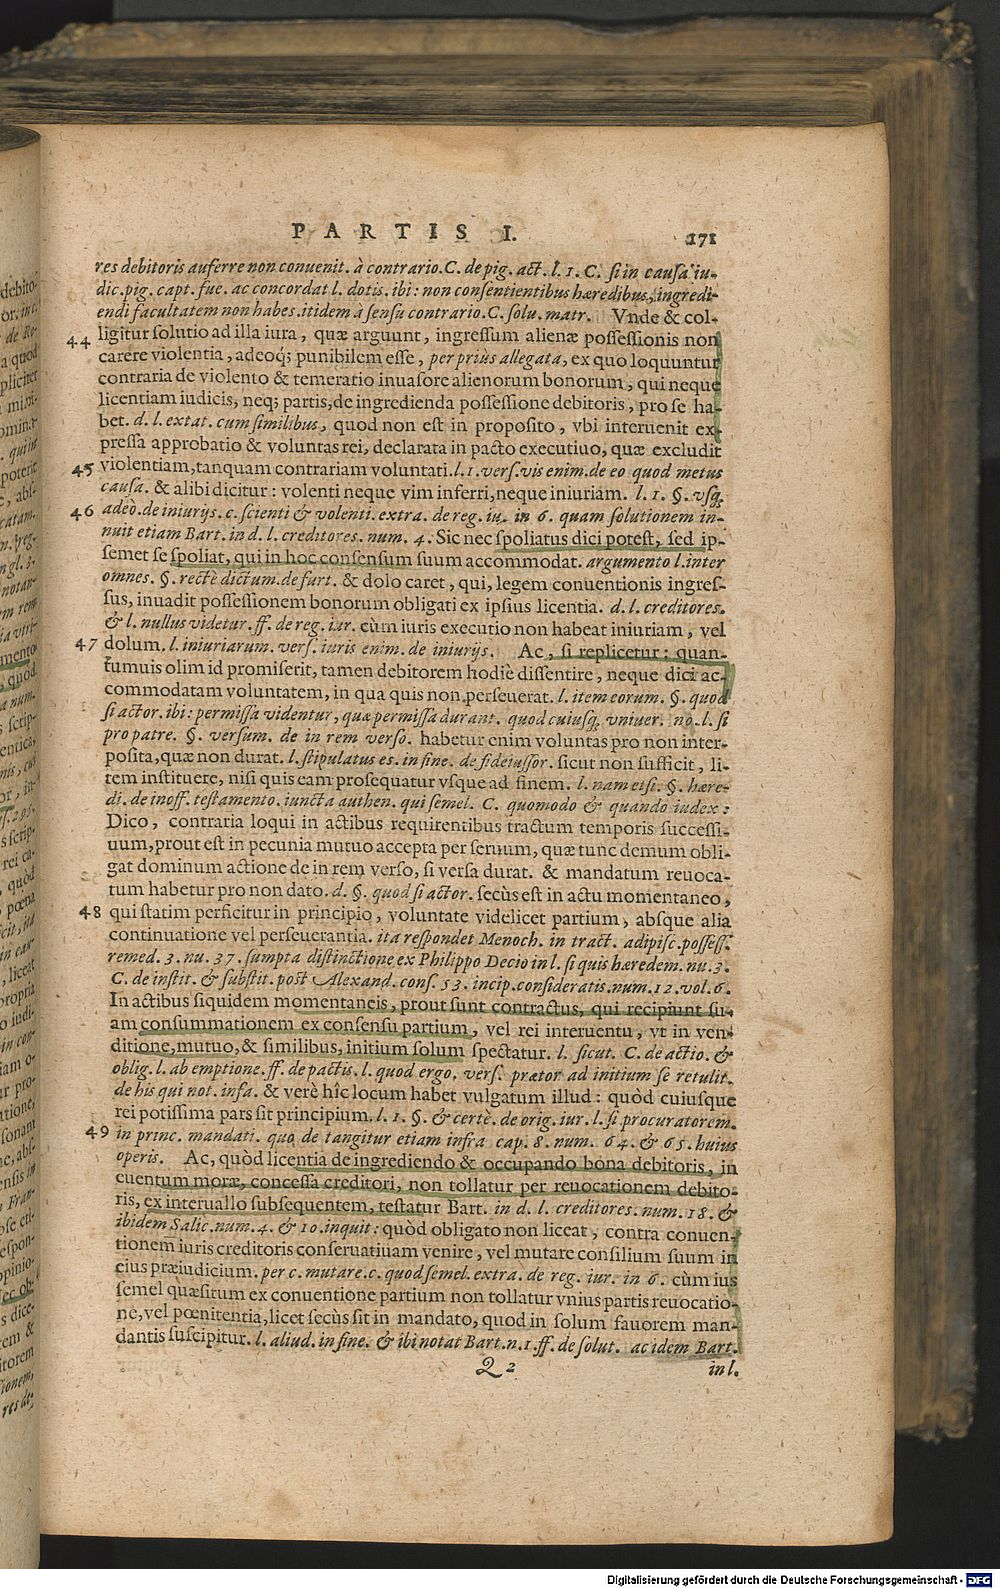 PARTIS I. 171
res debitoris auferre non conuenit. à contrario. C. de pig. act. l. 1. C. si in causa iu-
dic. pig. capt. fue. ac concordat l. dotis. ibi: non consentientibus hæredibus, ingredi-
endi facultatem non habes. itidem à sensu contrario. C. solu. matr. Vnde & col-
ligitur solutio ad illa iura, quæ arguunt, ingressum alienæ possessionis non
44 carere violentia, adeoq; punibilem esse, per priùs allegata, ex quo loquuntur
contraria de violento & temeratio inuasore alienorum bonorum, qui neque
licentiam iudicis, neq; partis, de ingredienda possessione debitoris, pro se ha-
bet. d. l. extat. cum similibus, quod non est in proposito, vbi interuenit ex-
pressa approbatio & voluntas rei, declarata in pacto executiuo, quæ excludit
45 violentiam, tanquam contrariam voluntati. l. 1. vers. vis enim. de eo quod metus
causa. & alibi dicitur: volenti neque vim inferri, neque iniuriam. l. 1. §. vsq;
46 adeò. de iniurijs. c. scienti & volenti. extra. de reg. iu. in 6. quam solutionem in-
nuit etiam Bart. in d. l. creditores. num. 4. Sic nec spoliatus dici potest, sed ip-
semet se spoliat, qui in hoc consensum suum accommodat. argumento l. inter
omnes. §. rectè dictum. de furt. & dolo caret, qui, legem conuentionis ingres-
sus, inuadit possessionem bonorum obligati ex ipsius licentia. d. l. creditores.
& l. nullus videtur. ff. de reg. iur. cùm iuris executio non habeat iniuriam, vel
47 dolum. l. iniuriarum. vers. iuris enim. de iniurijs. Ac, si replicetur: quan-
tumuis olim id promiserit, tamen debitorem hodiè dissentire, neque dici ac-
commodatam voluntatem, in qua quis non perseuerat. l. item eorum. §. quod
si actor. ibi: permissa videntur, quæ permissa durant. quod cuiusq. vniuer. no. l. si
pro patre. §. versum. de in rem verso. habetur enim voluntas pro non inter-
posita, quæ non durat. l. stipulatus es. in fine. de fideiussor. sicut non sufficit, li-
tem instituere, nisi quis eam prosequatur vsque ad finem. l. nam etsi. §. hære-
di. de inoff. testamento. iuncta authen. qui semel. C. quomodo & quando iudex:
Dico, contraria loqui in actibus requirentibus tractum temporis successi-
uum, prout est in pecunia mutuo accepta per seruum, quæ tunc demum obli-
gat dominum actione de in rem verso, si versa durat. & mandatum reuoca-
tum habetur pro non dato. d. §. quod si actor. secùs est in actu momentaneo,
48 qui statim perficitur in principio, voluntate videlicet partium, absque alia
continuatione vel perseuerantia. ita respondet Menoch. in tract. adipisc. possess.
remed. 3. nu. 37. sumpta distinctione ex Philippo Decio in l. si quis hæredem. nu. 3.
C. de instit. & substit. post Alexand. cons. 53. incip. consideratis. num. 12. vol. 6.
In actibus siquidem momentaneis, prout sunt contractus, qui recipiunt su-
am consummationem ex consensu partium, vel rei interuentu, vt in ven-
ditione, mutuo, & similibus, initium solum spectatur. l. sicut. C. de actio. &
oblig. l. ab emptione. ff. de pactis. l. quod ergo. vers. prætor ad initium se retulit.
de his qui not. infa. & verè hîc locum habet vulgatum illud: quòd cuiusque
rei potissima pars sit principium. l. 1. §. & certè. de orig. iur. l. si procuratorem.
49 in princ. mandati. quo de tangitur etiam infra cap. 8. num. 64. & 65. huius
operis. Ac, quòd licentia de ingrediendo & occupando bona debitoris, in
euentum moræ, concessa creditori, non tollatur per reuocationem debito-
ris, ex interuallo subsequentem, testatur Bart. in d. l. creditores. num. 18. &
ibidem Salic. num. 4. & 10. inquit: quòd obligato non liceat, contra conuen-
tionem iuris creditoris conseruatiuam venire, vel mutare consilium suum in
eius præiudicium. per c. mutare. c. quod semel. extra. de reg. iur. in 6. cùm ius
semel quæsitum ex conuentione partium non tollatur vnius partis reuocatio-
ne, vel pœnitentia, licet secùs sit in mandato, quod in solum fauorem man-
dantis suscipitur. l. aliud. in fine. & ibi notat Bart. n. 1. ff. de solut. ac idem Bart.
Q 2 in l.
Digitalisierung gefördert durch die Deutsche Forschungsgemeinschaft - DFG